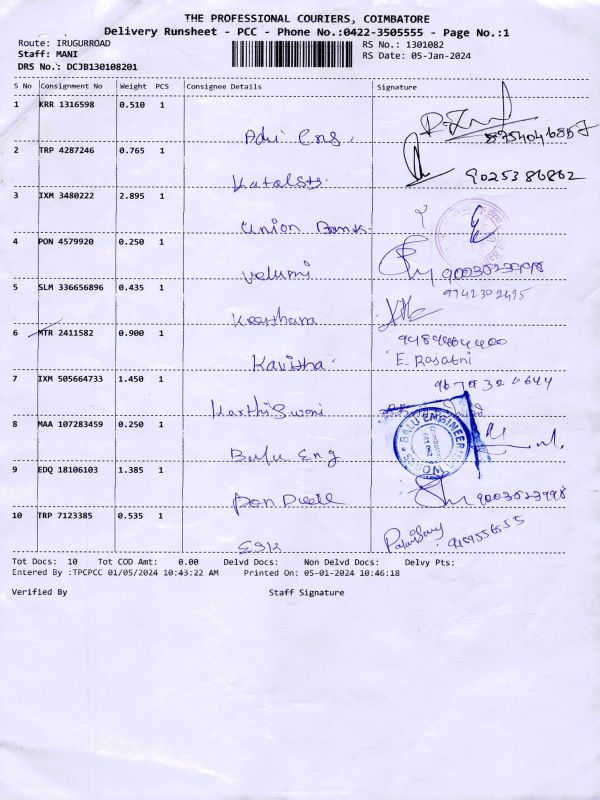 THE PROFESSIONAL COURIERS, COIMBATORE
Delivery Runsheet - PCC - Phone No.:0422-3505555 - Page No.:1
Route: IRUGURROAD RS No.: 1301082
Staff: MANI RS Date: 05-Jan-2024
DRS No.: DCJB130108201
S No Consignment No Weight PCS Consignee Details Signature
1 KRR 1316598 0.510 1
8754046857
2 TRP 4287246 0.765 1
9025386862
3 IXM 3480222 2.895 1
Union Banks.
4 PON 4579920 0.250 1
Velumi 9003023998
9942302495
5 SLM 336656896 0.435 1
Keerthana
9489464400
6 MTR 2411582 0.900 1
E. Rajatni
Kavitha.
7 IXM 505664733 1.450 1
Karthiswani
8 MAA 107283459 0.250 1
BALU ENGINEERING WORKS
Balu Eng
9 EDQ 18106103 1.385 1
9003023998
10 TRP 7123385 0.535 1
ESK
Tot Docs: 10 Tot COD Amt: 0.00 Delvd Docs: Non Delvd Docs: Delvy Pts:
Entered By :TPCPCC 01/05/2024 10:43:22 AM Printed On: 05-01-2024 10:46:18
Verified By Staff Signature